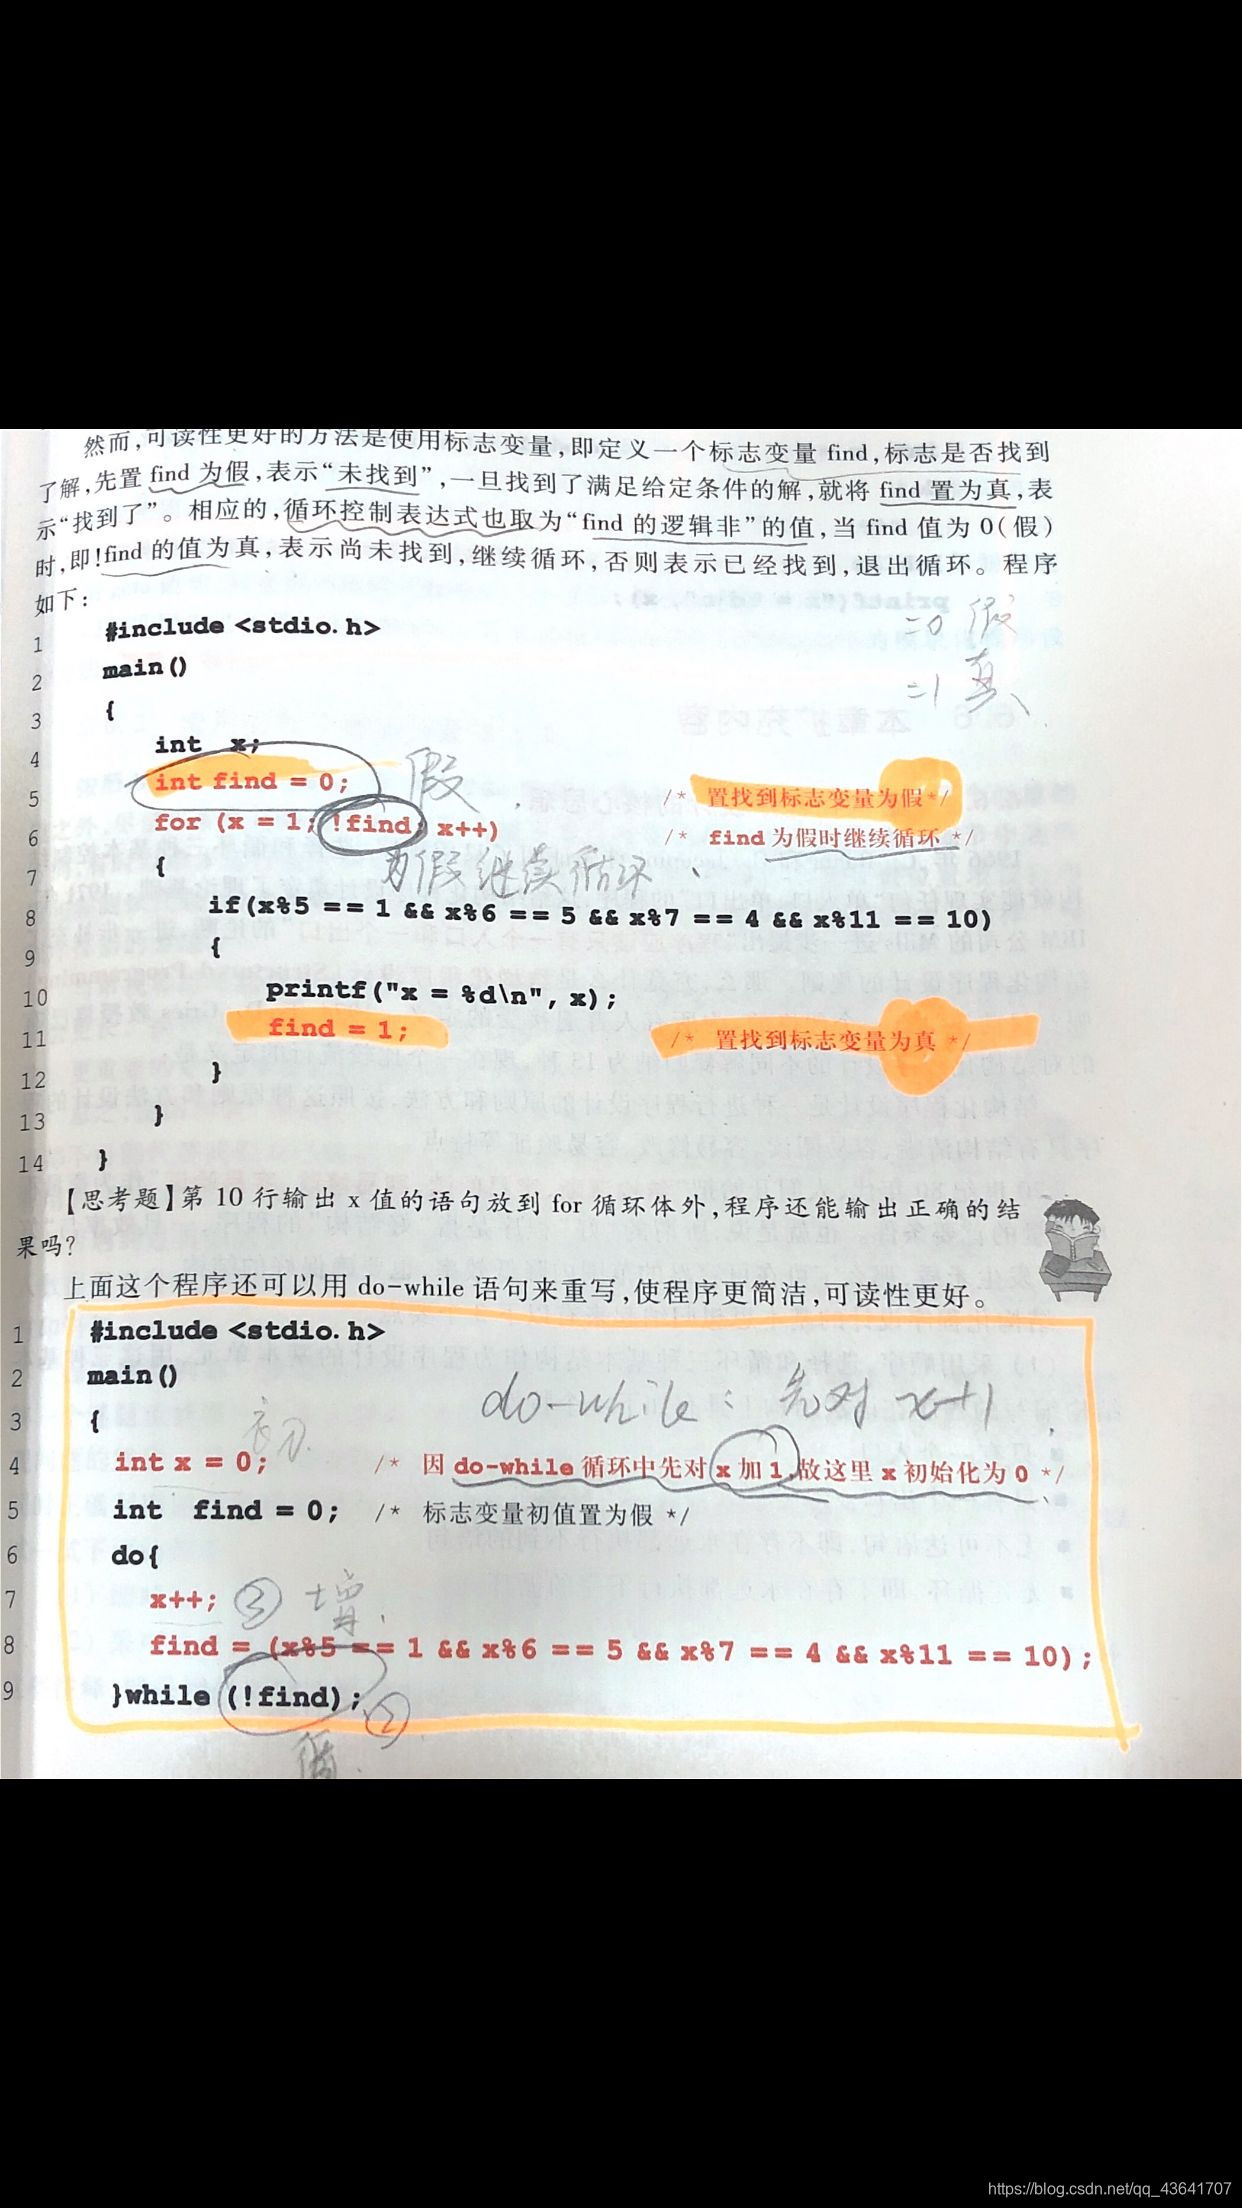 然而,可读性更好的方法是使用标志变量,即定义一个标志变量 find,标志是否找到
了解,先置 find 为假,表示“未找到”,一旦找到了满足给定条件的解,就将 find 置为真,表
示“找到了”。相应的,循环控制表达式也取为“find 的逻辑非”的值,当 find 值为 0(假)
时,即!find 的值为真,表示尚未找到,继续循环,否则表示已经找到,退出循环。程序
如下:
=0 假
=1 真
1 #include <stdio.h>
2 main()
3 {
4 int x;
5 int find = 0; 假 /* 置找到标志变量为假*/
6 for (x = 1; !find; x++) /* find 为假时继续循环 */
7 { 为假继续循环
8 if(x%5 == 1 && x%6 == 5 && x%7 == 4 && x%11 == 10)
9 {
10 printf("x = %d\n", x);
11 find = 1; /* 置找到标志变量为真 */
12 }
13 }
14 }
【思考题】第 10 行输出 x 值的语句放到 for 循环体外,程序还能输出正确的结
果吗?
上面这个程序还可以用 do-while 语句来重写,使程序更简洁,可读性更好。
1 #include <stdio.h>
2 main()
do-while: 先对 x+1
3 { 初
4 int x = 0; /* 因 do-while 循环中先对 x 加 1,故这里 x 初始化为 0 */
5 int find = 0; /* 标志变量初值置为假 */
6 do{
7 x++; ③ 增
8 find = (x%5 == 1 && x%6 == 5 && x%7 == 4 && x%11 == 10);
9 }while (!find); ②
https://blog.csdn.net/qq_43641707